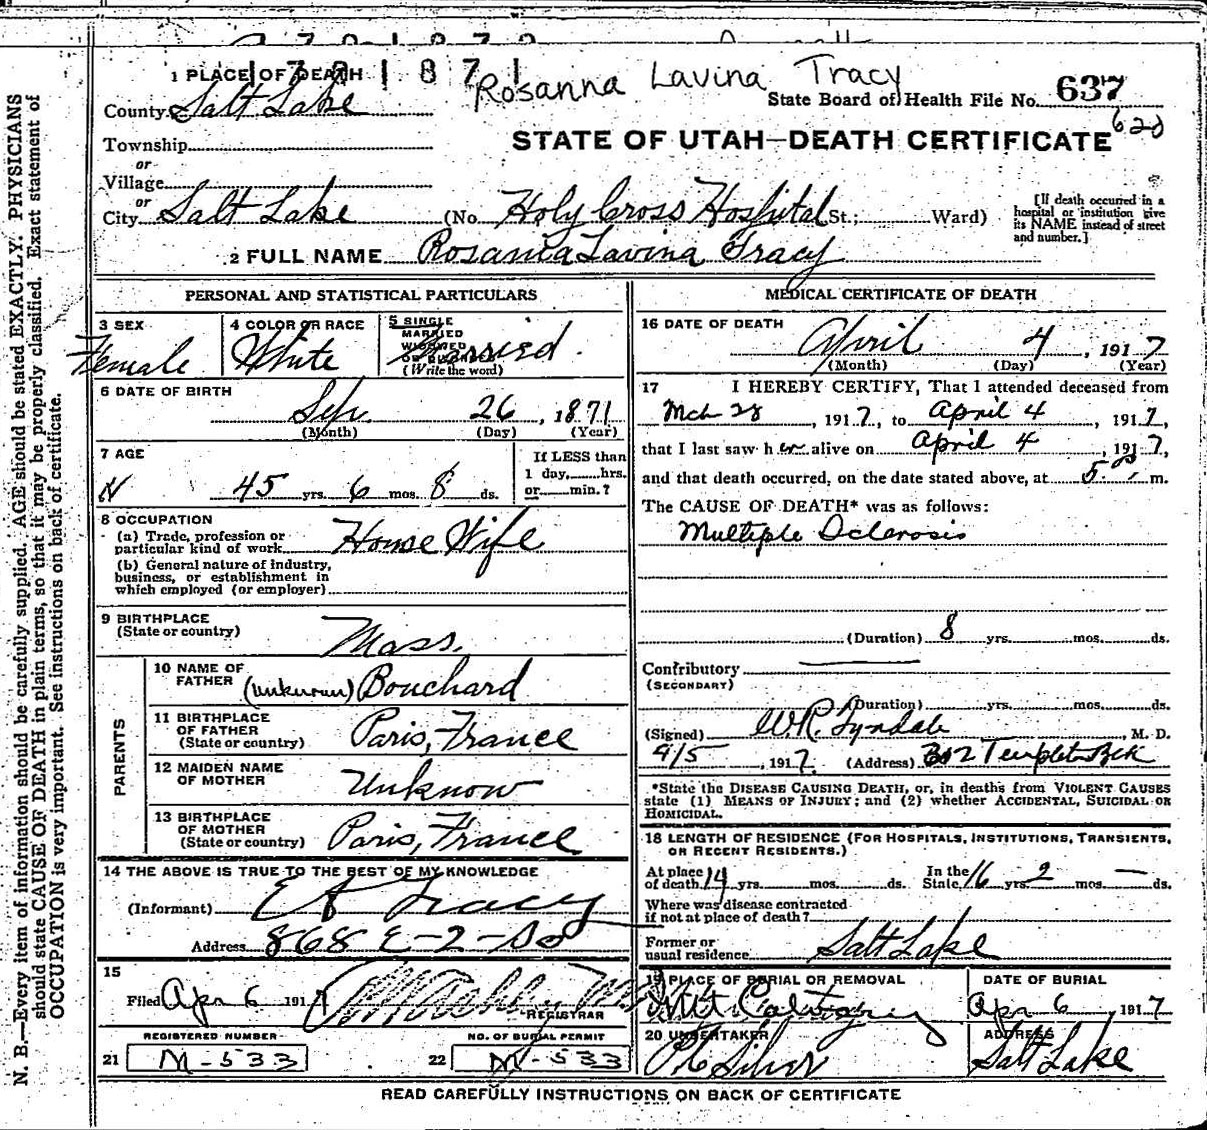 1 PLACE OF DEATH 1 7 2 1 8 7 1
Rosanna Lavina Tracy
County Salt Lake
State Board of Health File No. 637
620
Township
STATE OF UTAH—DEATH CERTIFICATE
or
Village
or
City Salt Lake (No. Holy Cross Hospital St.; Ward)
[If death occurred in a hospital or institution give its NAME instead of street and number.]
2 FULL NAME Rosanna Lavina Tracy
PERSONAL AND STATISTICAL PARTICULARS
3 SEX
Female
4 COLOR OR RACE
White
5 SINGLE
MARRIED
WIDOWED
OR DIVORCED
(Write the word)
Married
6 DATE OF BIRTH
Sep. 26, 1871
(Month) (Day) (Year)
7 AGE
45 yrs. 6 mos. 8 ds.
If LESS than
1 day, hrs.
or min.?
8 OCCUPATION
(a) Trade, profession or
particular kind of work House Wife
(b) General nature of industry,
business, or establishment in
which employed (or employer)
9 BIRTHPLACE
(State or country) Mass.
PARENTS
10 NAME OF
FATHER (unknown) Bouchard
11 BIRTHPLACE
OF FATHER
(State or country) Paris, France
12 MAIDEN NAME
OF MOTHER Unknow
13 BIRTHPLACE
OF MOTHER
(State or country) Paris, France
14 THE ABOVE IS TRUE TO THE BEST OF MY KNOWLEDGE
(Informant) E A Tracy
Address 868 E-2-So
15
Filed Apr 6 1917
REGISTRAR
REGISTERED NUMBER
21 M-533
NO. OF BURIAL PERMIT
22 M-533
MEDICAL CERTIFICATE OF DEATH
16 DATE OF DEATH
April 4, 1917
(Month) (Day) (Year)
17 I HEREBY CERTIFY, That I attended deceased from
Mch 28, 1917, to April 4, 1917,
that I last saw her alive on April 4, 1917,
and that death occurred, on the date stated above, at 5.00 m.
The CAUSE OF DEATH* was as follows:
Multiple Sclerosis
(Duration) 8 yrs. mos. ds.
Contributory
(SECONDARY)
(Duration) yrs. mos. ds.
(Signed) W.R. Tyndale, M. D.
4/5, 1917. (Address) Templeton Blk
*State the DISEASE CAUSING DEATH, or, in deaths from VIOLENT CAUSES
state (1) MEANS OF INJURY; and (2) whether ACCIDENTAL, SUICIDAL OR
HOMICIDAL.
18 LENGTH OF RESIDENCE (FOR HOSPITALS, INSTITUTIONS, TRANSIENTS,
OR RECENT RESIDENTS.)
At place
of death 14 yrs. mos. ds.
In the
State 16 yrs. 2 mos — ds.
Where was disease contracted
if not at place of death?
Former or
usual residence Salt Lake
19 PLACE OF BURIAL OR REMOVAL
Mt Calvary
DATE OF BURIAL
Apr 6, 1917
20 UNDERTAKER
ADDRESS
Salt Lake
READ CAREFULLY INSTRUCTIONS ON BACK OF CERTIFICATE
N. B.—Every item of information should be carefully supplied. AGE should be stated EXACTLY. PHYSICIANS
should state CAUSE OF DEATH in plain terms, so that it may be properly classified. Exact statement of
OCCUPATION is very important. See instructions on back of certificate.